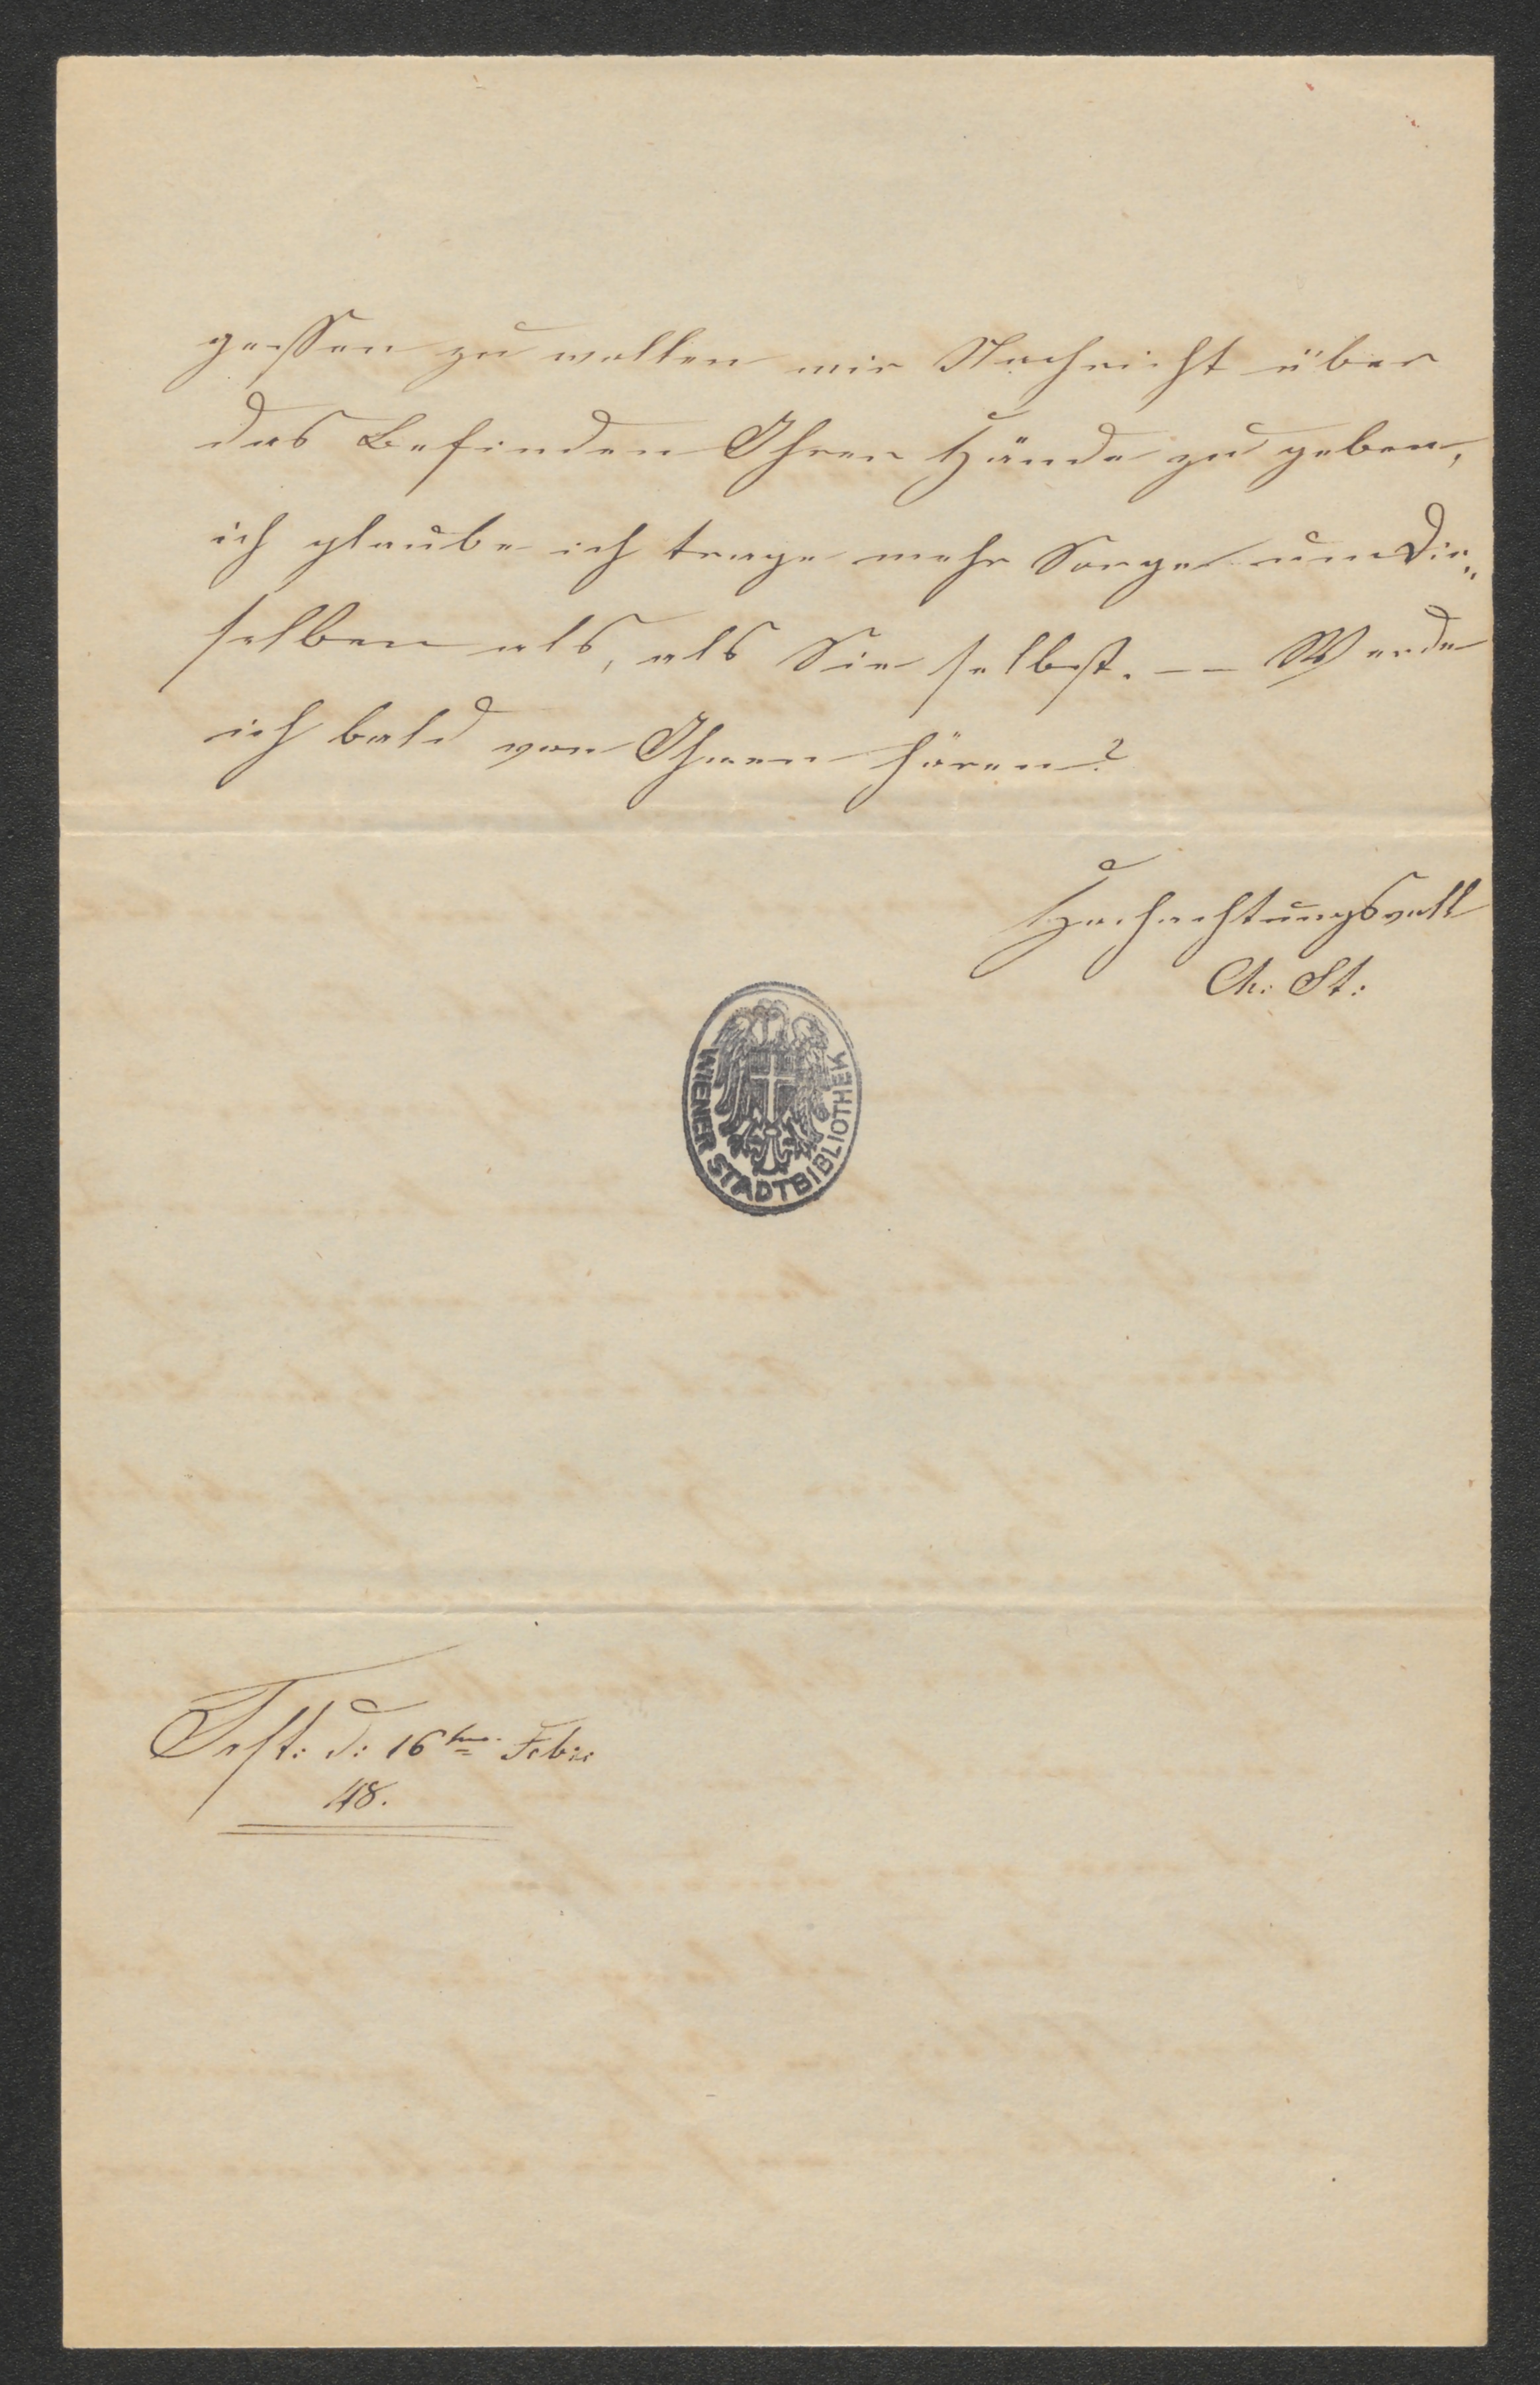 gessen zu wollen mir Nachricht über
das Befinden Ihrer Hände zu geben,
ich glaube ich trage mehr Sorge um die„
selben als, als Sie selbst. — — Werde
ich bald von Ihnen hören?
Hochachtungsvoll
Ch: St:
WIENER STADTBIBLIOTHEK
d: 16 Febr:
48.